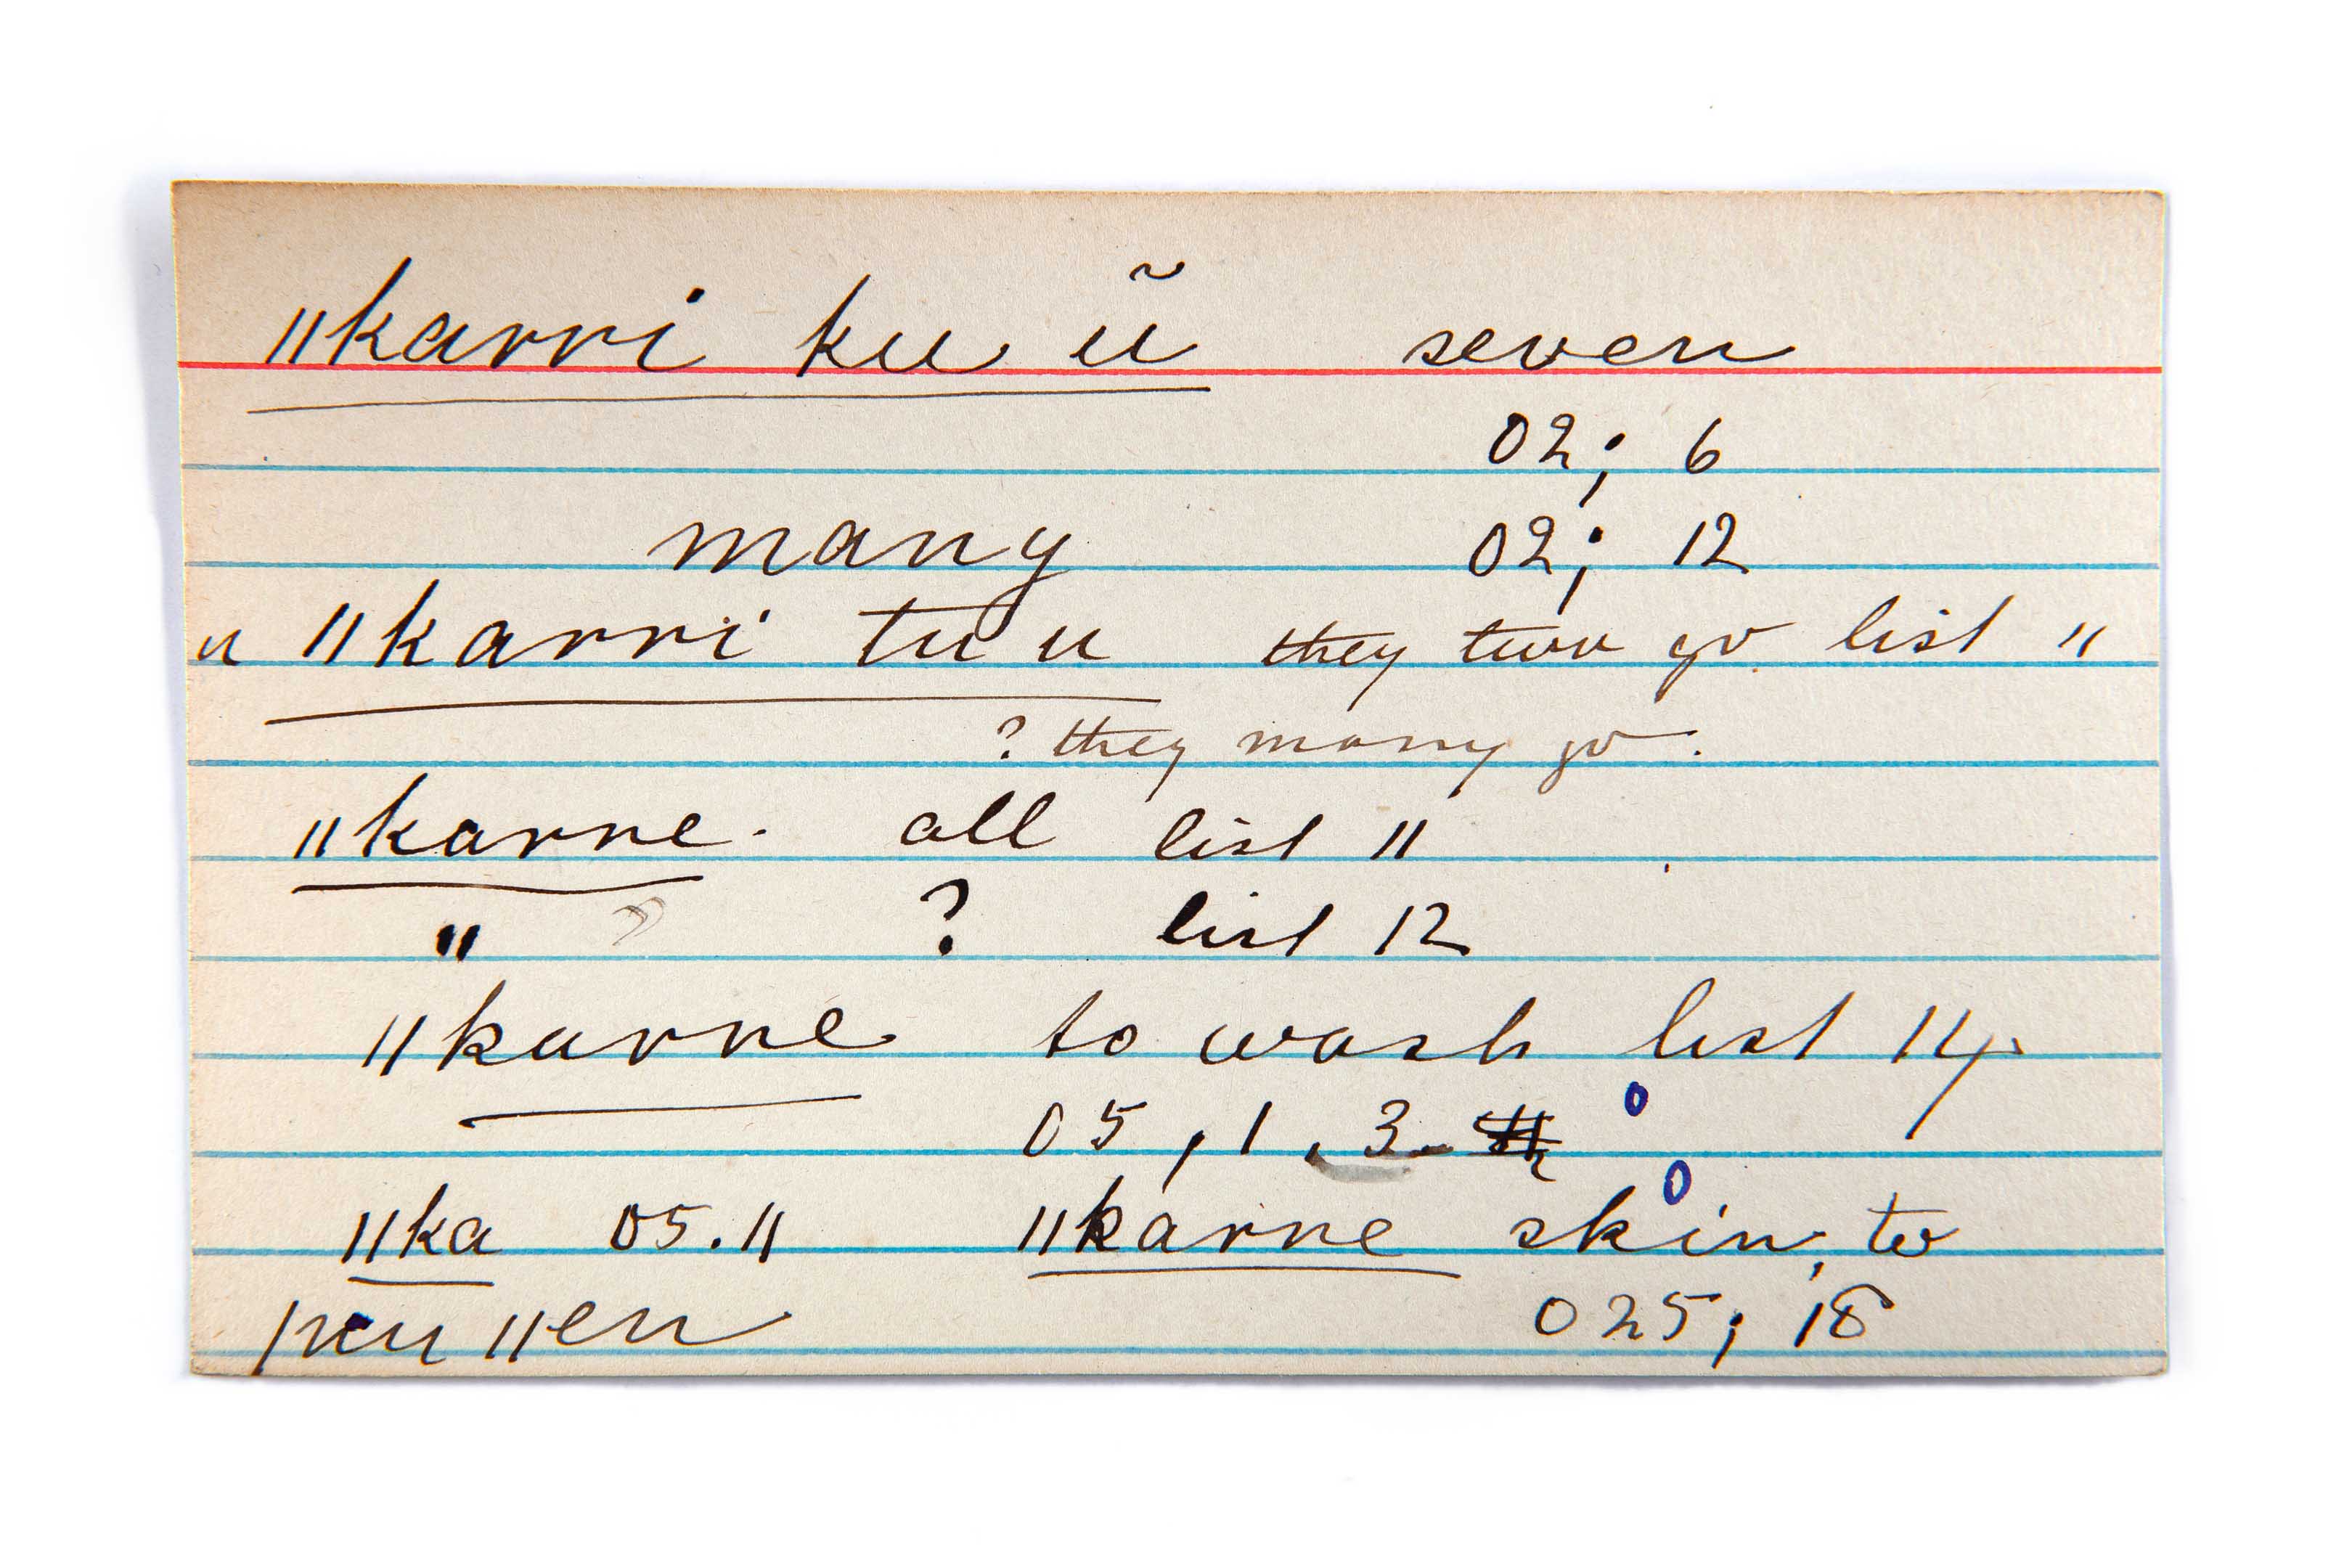 ǁkarri ku ũ seven
02; 6
many 02; 12
u ǁkarri tu u they two go list 11
? they many go.
ǁkarre. all list 11
" ? list 12
ǁkarre to wash list 14
05, 1, 3.
ǁka 05.11 ǁkarre skin, to
ǁen 025; 18